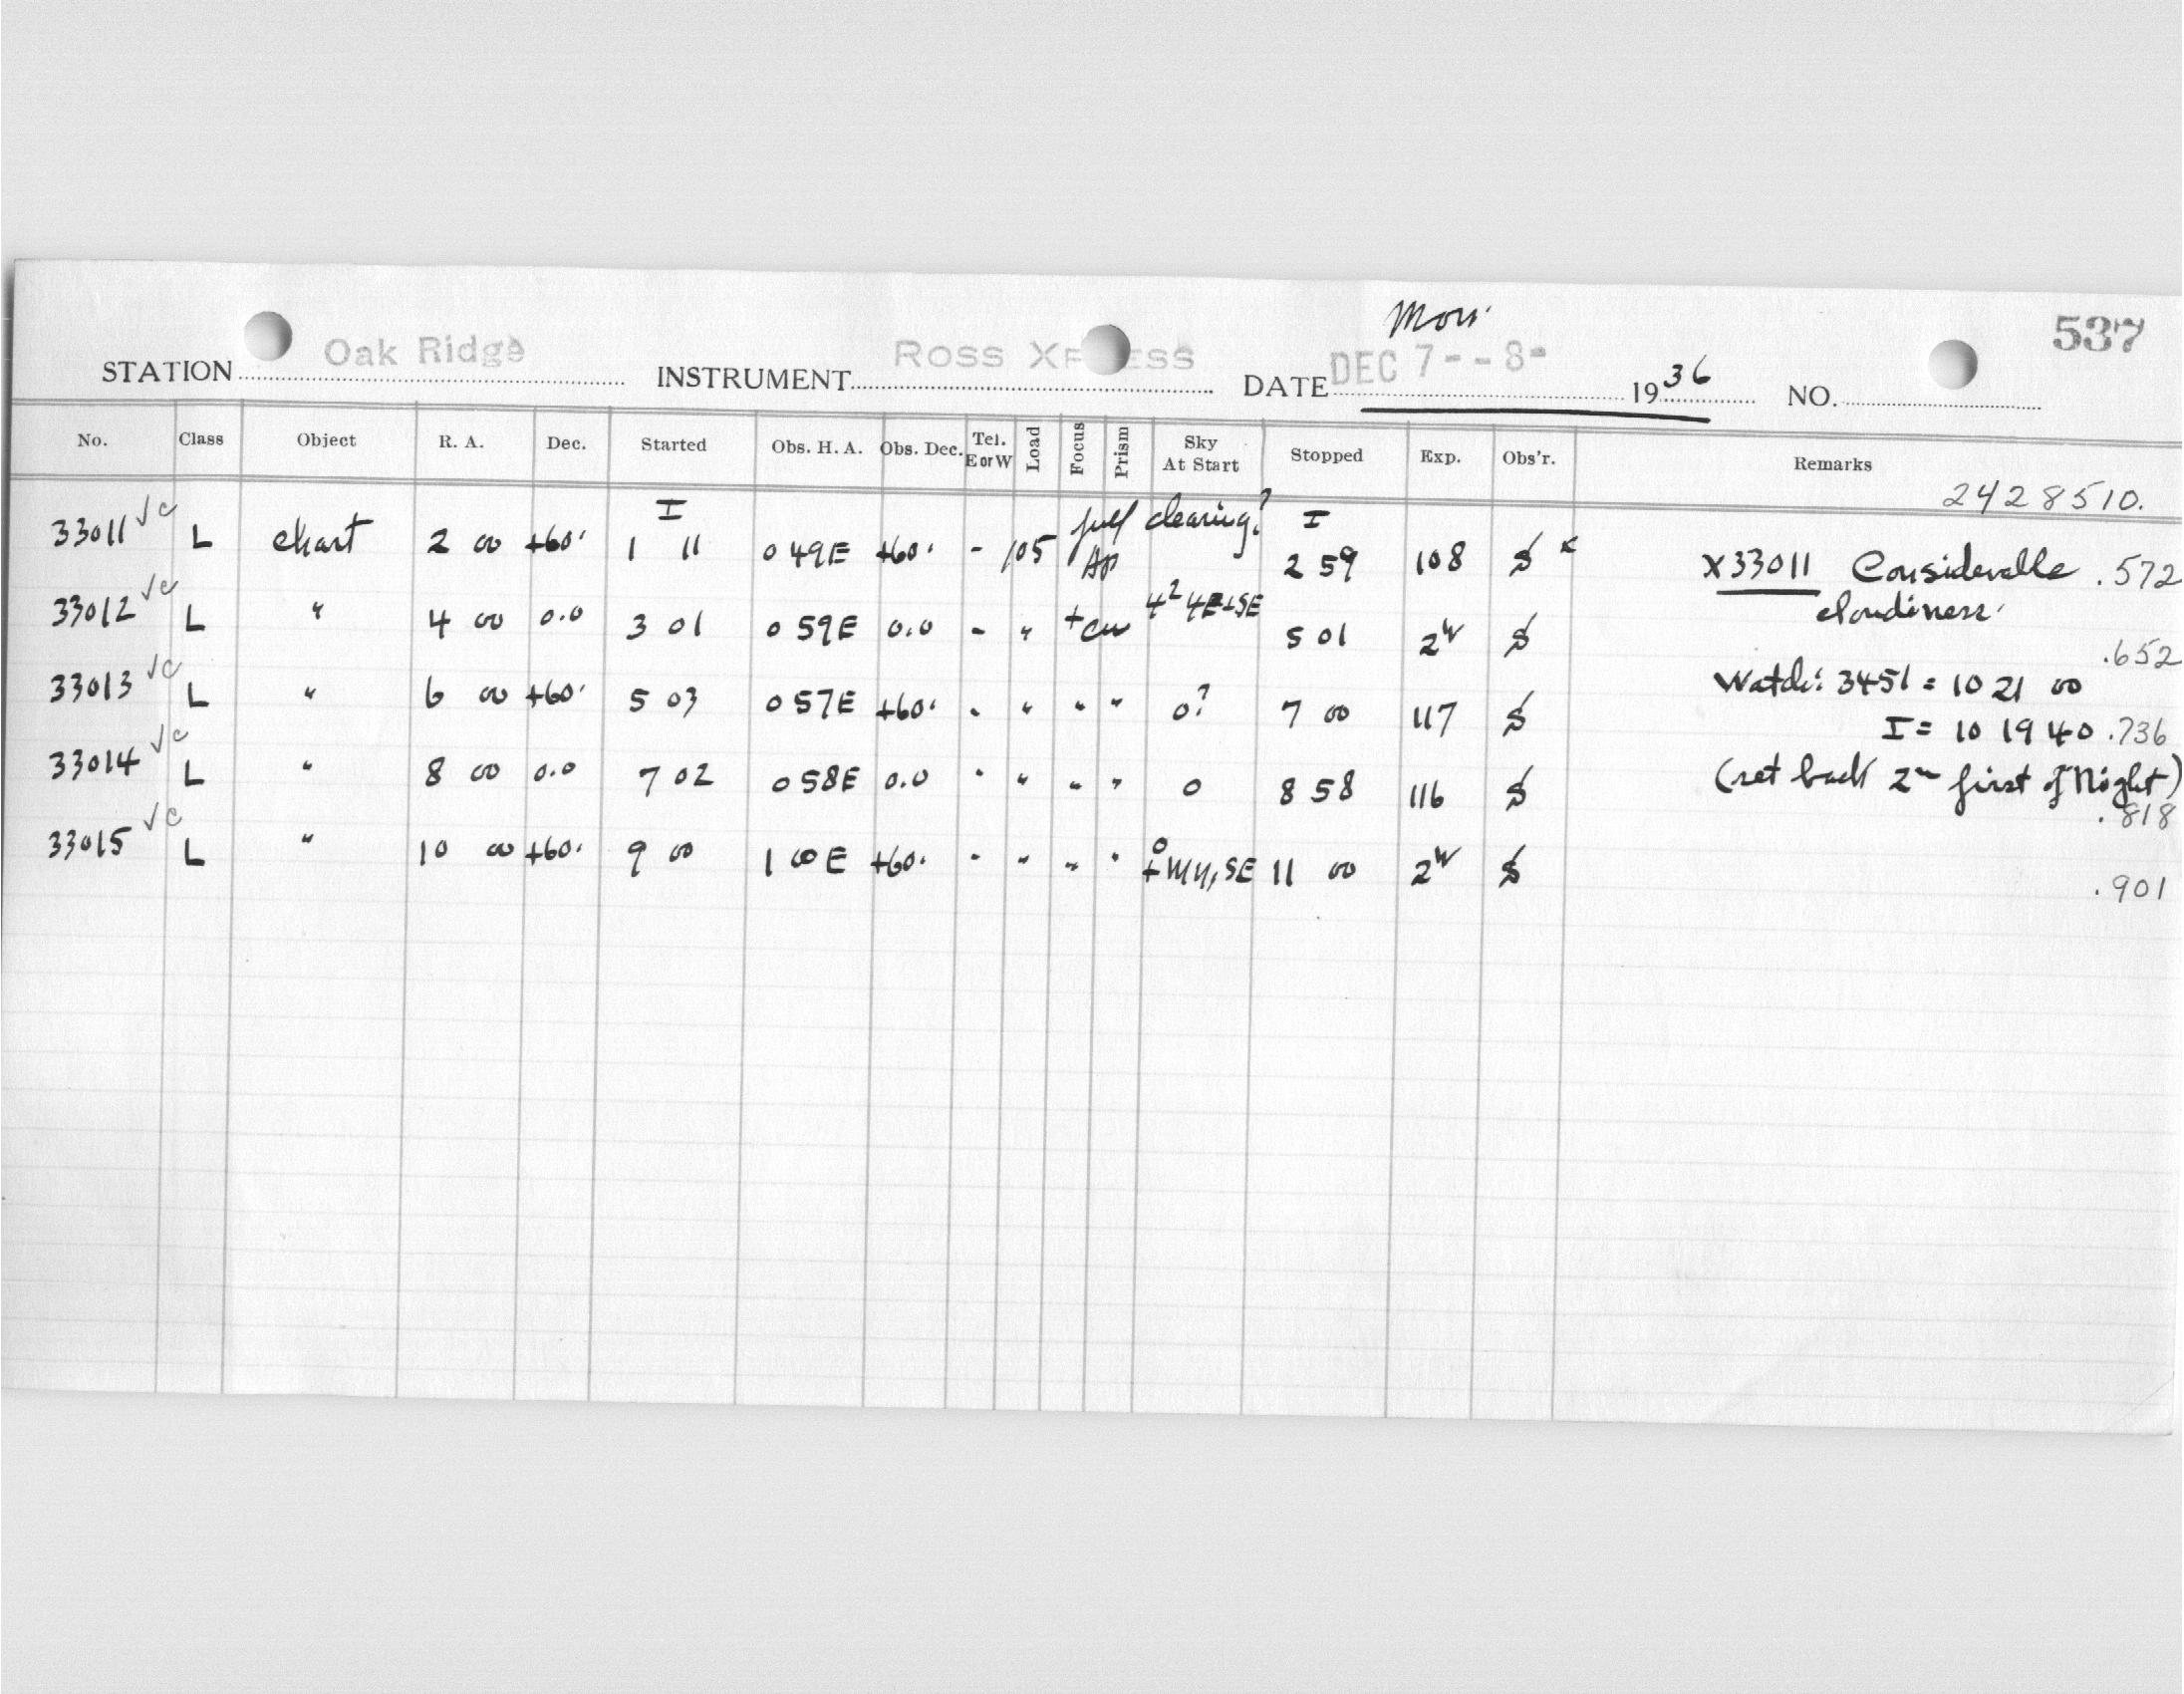 Mon.
537
STATION Oak Ridge INSTRUMENT ROSS XPRESS DATE DEC 7--8- 1936 NO.
No. Class Object R. A. Dec. Started Obs. H. A. Obs. Dec. Tel. E or W Load Focus Prism Sky At Start Stopped Exp. Obs'r. Remarks
2428510.
33011 √c L chart 2 00 +60° I 1 11 0 49E +60° - 105 clearing? I 2 59 108 S x X33011 Considerable .572
cloudiness.
33012 √c L " 4 00 0.0 3 01 0 59E 0.0 - " 5 01 2h S .652
33013 √c L " 6 00 +60° 5 03 0 57E +60° " " " " 0? 7 00 117 S Watch: 3451 = 10 21 00
I = 10 19 40 .736
33014 √c L " 8 00 0.0 7 02 0 58E 0.0 " " " " 0 8 58 116 S (set back 2m first of Night)
.818
33015 √c L " 10 00 +60° 9 00 1 00E +60° " " " " 0 11 00 2h S .901